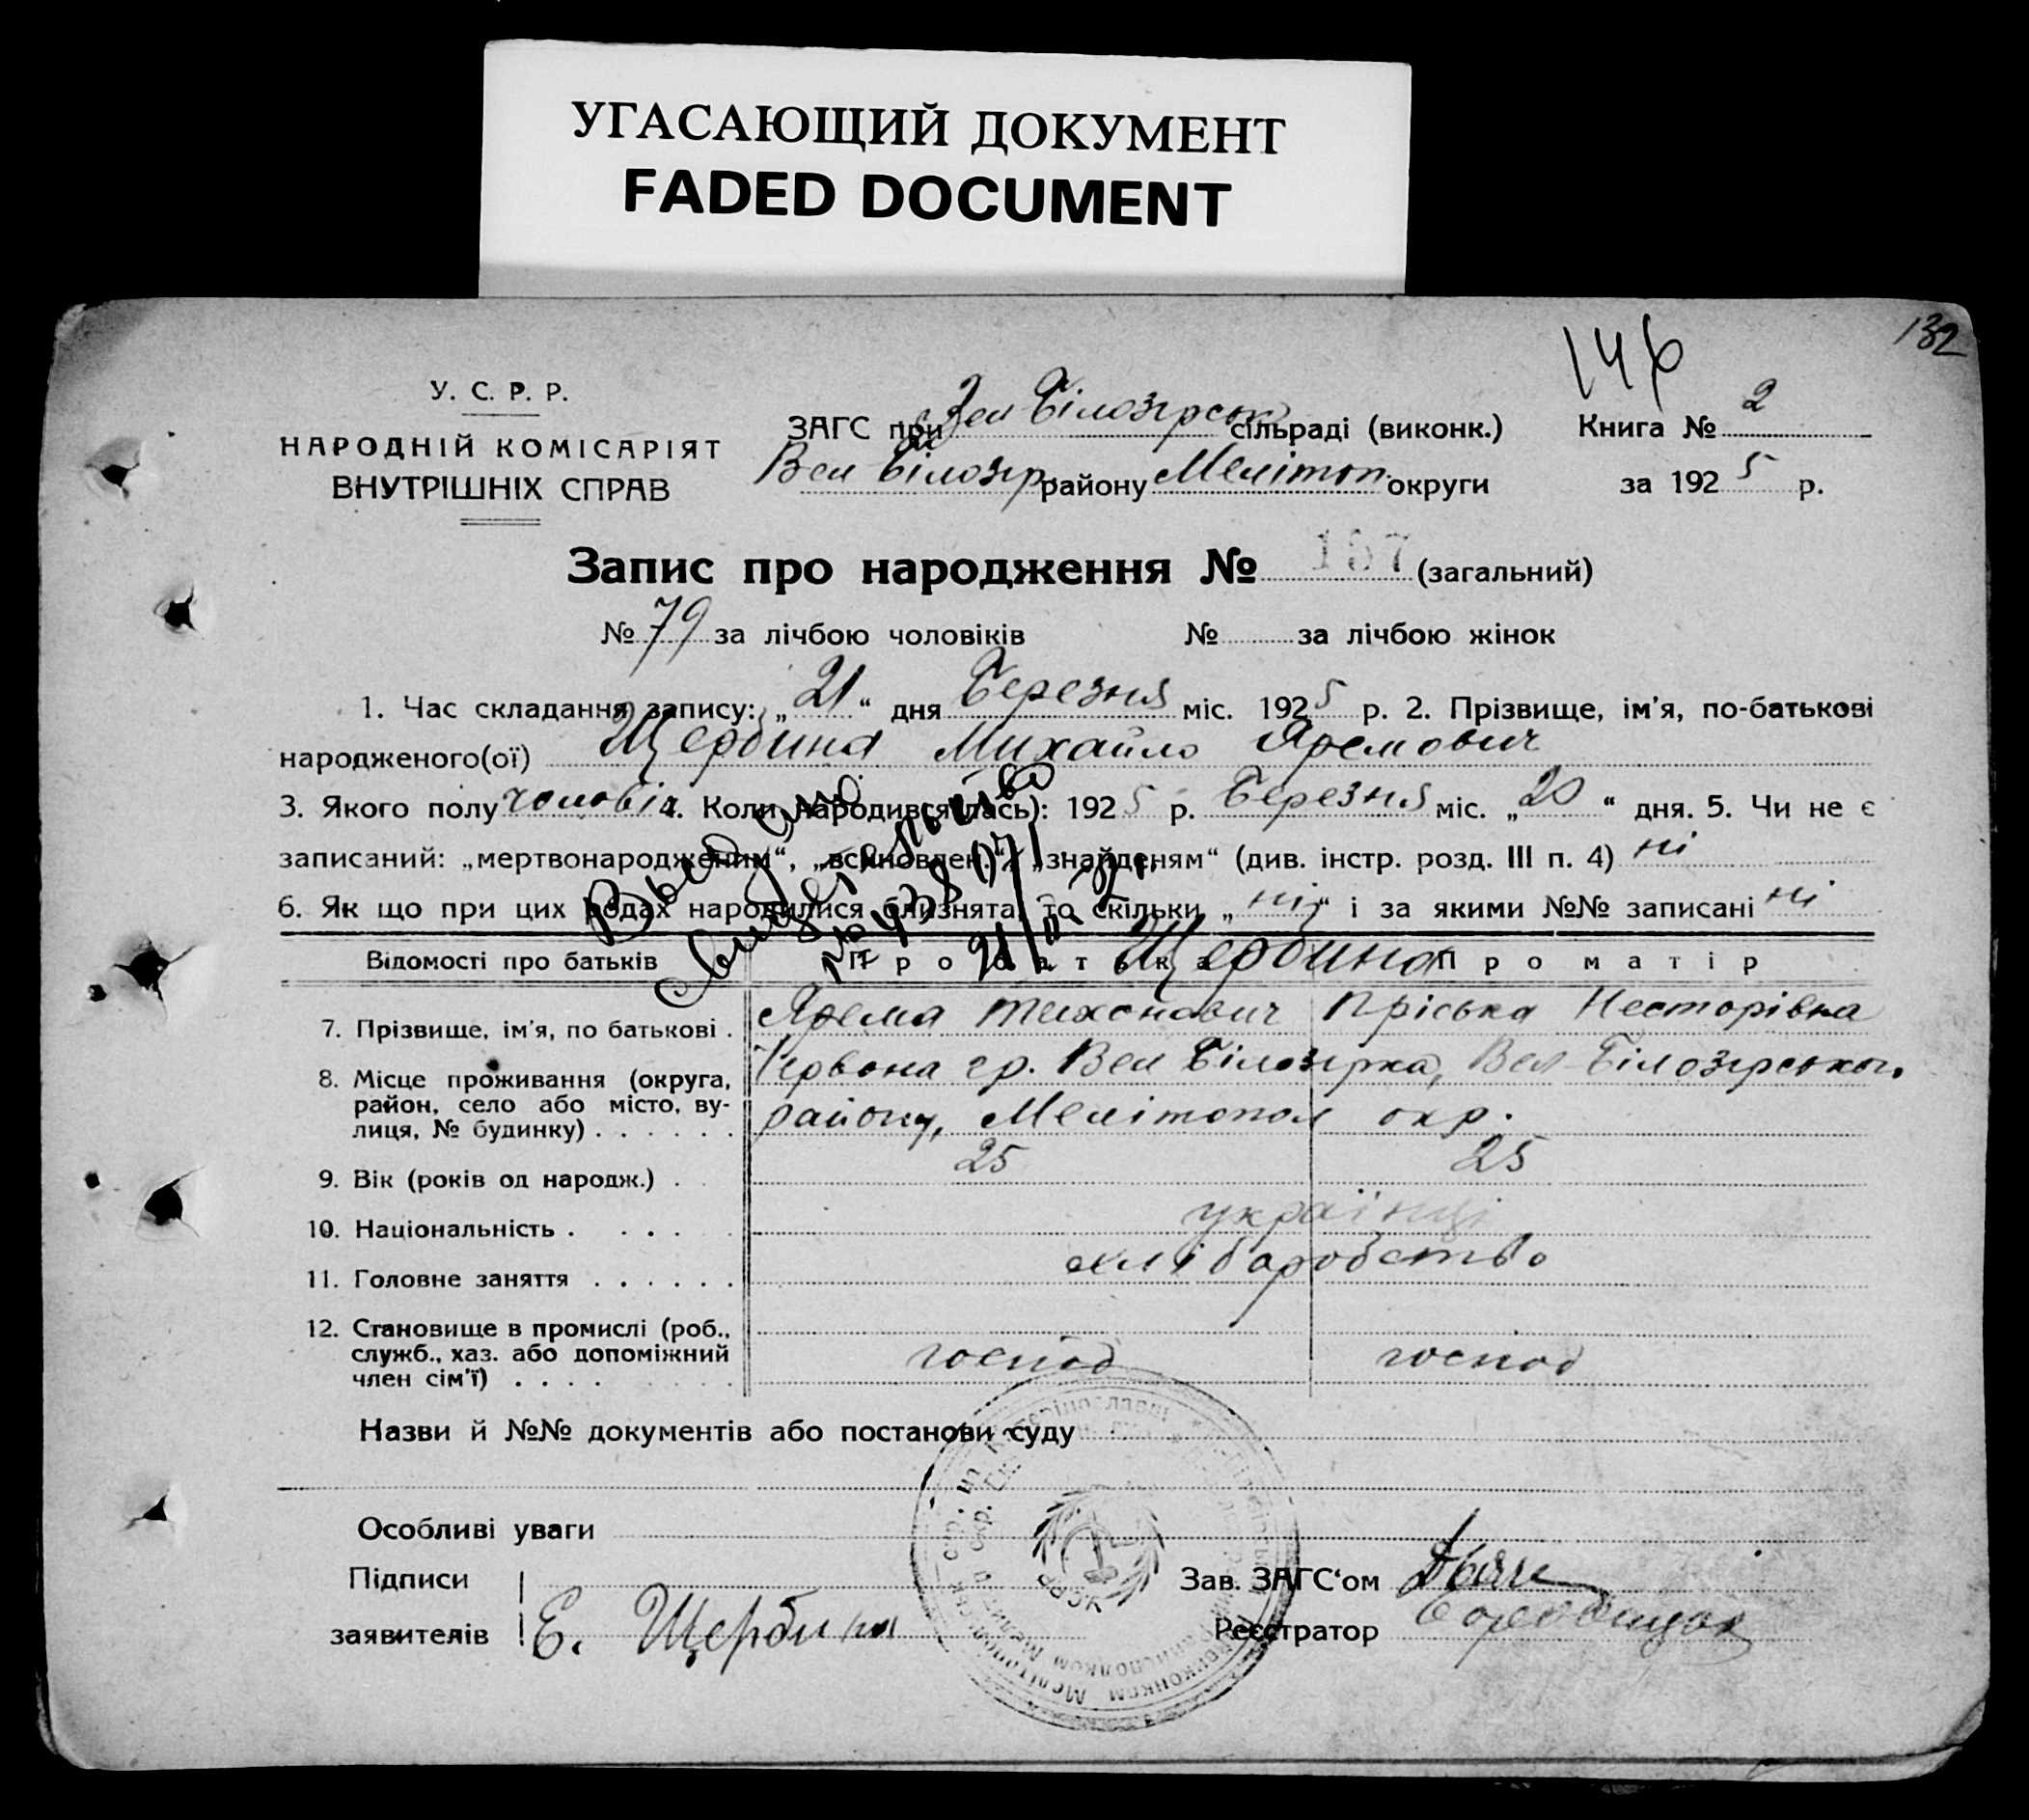 УГАСАЮЩИЙ ДОКУМЕНТ
FADED DOCUMENT
132
146
У. С. Р. Р.
НАРОДНІЙ КОМІСАРІЯТ
ВНУТРІШНІХ СПРАВ
ЗАГС при Вел Білозірськ сільраді (виконк.) Книга № 2
Вел Білозір району Мелітоп. округи за 1925 р.
Запис про народження № 167 (загальний)
№ 79 за лічбою чоловіків № за лічбою жінок
1. Час складання запису: „21“ дня Березня міс. 1925 р. 2. Прізвище, ім'я, по-батькові
народженого(ої) Щербина Михайло Яремович
3. Якого полу чоловіч 4. Коли народився(лась): 1925 р. Березня міс. „20“ дня. 5. Чи не є
записаний: „мертвонародженим“, „всиновлен.“, „знайденям“ (див. інстр. розд. III п. 4) ні
6. Як що при цих родах народилися близнята, то скільки „ні“ і за якими №№ записані ні
Выдано
свидетельство
Відомості про батьків Про батька Щербина Про матір
7. Прізвище, ім'я, по батькові . Ярема Тихонович Пріська Несторівна
8. Місце проживання (округа, Червона гр. Вел Білозірка, Вел-Білозірськог.
район, село або місто, ву- району, Мелітопол окр.
лиця, № будинку) . . . . . .
9. Вік (років од народж.) . 25 25
10. Національність . . . . українці
11. Головне заняття . . . . . . хліборобство
12. Становище в промислі (роб.,
служб., хаз. або допоміжний господ господ
член сім'ї) . . . .
Назви й №№ документів або постанови суду
Особливі уваги
Підписи Зав. ЗАГС'ом
заявителів Е. Щербина Реєстратор
УСРР